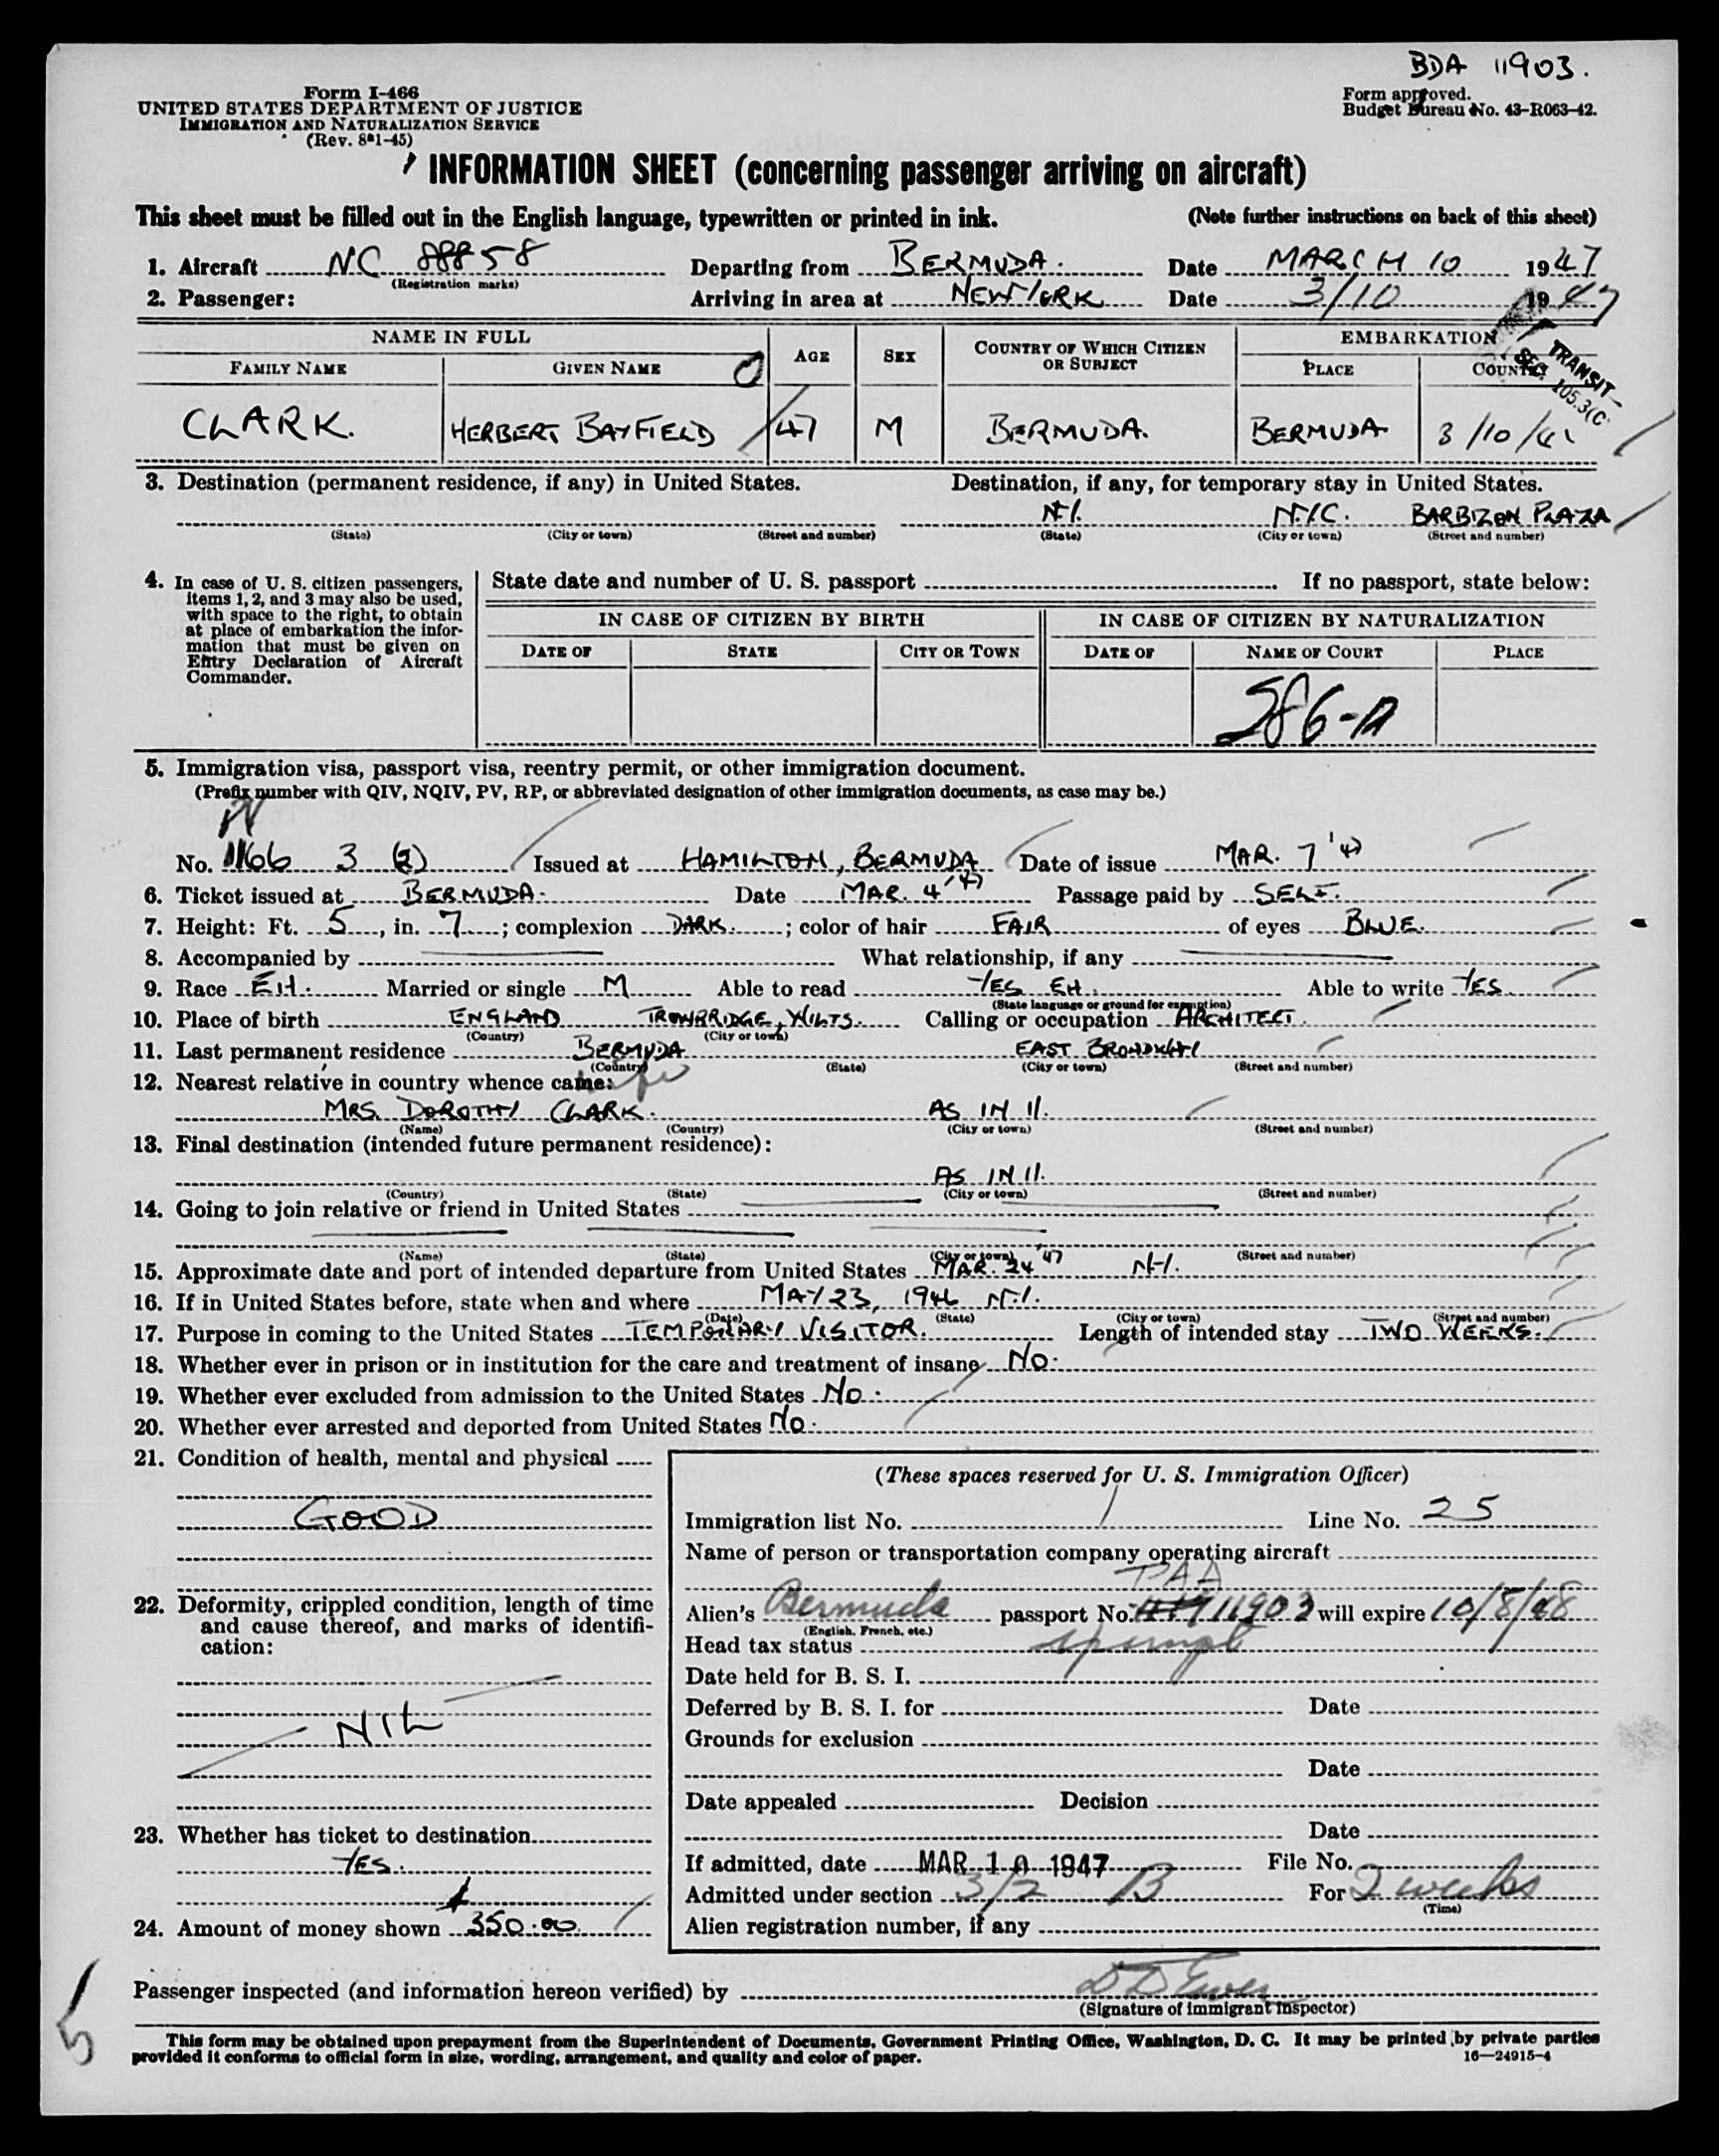 BDA 11903.
Form I-466
UNITED STATES DEPARTMENT OF JUSTICE
IMMIGRATION AND NATURALIZATION SERVICE
(Rev. 8-1-45)
Form approved.
Budget Bureau No. 43-R063-42.
INFORMATION SHEET (concerning passenger arriving on aircraft)
This sheet must be filled out in the English language, typewritten or printed in ink. (Note further instructions on back of this sheet)
1. Aircraft NC 88858 Departing from BERMUDA. Date MARCH 10 1947
(Registration marks)
2. Passenger: Arriving in area at NEW YORK Date 3/10 1947
NAME IN FULL AGE SEX COUNTRY OF WHICH CITIZEN OR SUBJECT EMBARKATION
FAMILY NAME GIVEN NAME PLACE COUNTRY
TRANSIT
SEC. 105.3(C
CLARK. HERBERT BAYFIELD 47 M BERMUDA. BERMUDA 3/10/4
3. Destination (permanent residence, if any) in United States. Destination, if any, for temporary stay in United States.
N.Y. N.Y.C. BARBIZON PLAZA
(State) (City or town) (Street and number) (State) (City or town) (Street and number)
4. In case of U. S. citizen passengers, items 1, 2, and 3 may also be used, with space to the right, to obtain at place of embarkation the information that must be given on Entry Declaration of Aircraft Commander.
State date and number of U. S. passport If no passport, state below:
IN CASE OF CITIZEN BY BIRTH IN CASE OF CITIZEN BY NATURALIZATION
DATE OF STATE CITY OR TOWN DATE OF NAME OF COURT PLACE
5. Immigration visa, passport visa, reentry permit, or other immigration document.
(Prefix number with QIV, NQIV, PV, RP, or abbreviated designation of other immigration documents, as case may be.)
No. 1166 3 (2) Issued at HAMILTON, BERMUDA Date of issue MAR. 7 '47
6. Ticket issued at BERMUDA. Date MAR. 4 '47 Passage paid by SELF.
7. Height: Ft. 5, in. 7; complexion DARK.; color of hair FAIR of eyes BLUE.
8. Accompanied by What relationship, if any
9. Race EH. Married or single M Able to read YES EH. Able to write YES.
(State language or ground for exemption)
10. Place of birth ENGLAND TROWBRIDGE, WILTS. Calling or occupation ARCHITECT.
(Country) (City or town)
11. Last permanent residence BERMUDA EAST BROADWAY
(Country) (State) (City or town) (Street and number)
12. Nearest relative in country whence came: wife
MRS. DOROTHY CLARK. AS IN 11.
(Name) (Country) (City or town) (Street and number)
13. Final destination (intended future permanent residence):
AS IN 11.
(Country) (State) (City or town) (Street and number)
14. Going to join relative or friend in United States
(Name) (State) (City or town) (Street and number)
15. Approximate date and port of intended departure from United States MAR. 24 '47 N.Y.
16. If in United States before, state when and where MAY 23, 1946 N.Y.
(Date) (State) (City or town) (Street and number)
17. Purpose in coming to the United States TEMPORARY VISITOR. Length of intended stay TWO WEEKS.
18. Whether ever in prison or in institution for the care and treatment of insane NO.
19. Whether ever excluded from admission to the United States NO.
20. Whether ever arrested and deported from United States NO.
21. Condition of health, mental and physical
GOOD
22. Deformity, crippled condition, length of time and cause thereof, and marks of identification:
NIL
23. Whether has ticket to destination
YES.
24. Amount of money shown 350.00
(These spaces reserved for U. S. Immigration Officer)
Immigration list No. 1 Line No. 25
Name of person or transportation company operating aircraft
PAA
Alien's Bermuda passport No. 11903 will expire 10/8/48
(English, French, etc.)
Head tax status
Date held for B. S. I.
Deferred by B. S. I. for Date
Grounds for exclusion
Date
Date appealed Decision
Date
If admitted, date MAR 10 1947 File No.
Admitted under section 3/2 B For 2 weeks
(Time)
Alien registration number, if any
Passenger inspected (and information hereon verified) by
(Signature of immigrant inspector)
5
This form may be obtained upon prepayment from the Superintendent of Documents, Government Printing Office, Washington, D. C. It may be printed by private parties
provided it conforms to official form in size, wording, arrangement, and quality and color of paper. 16—24915-4